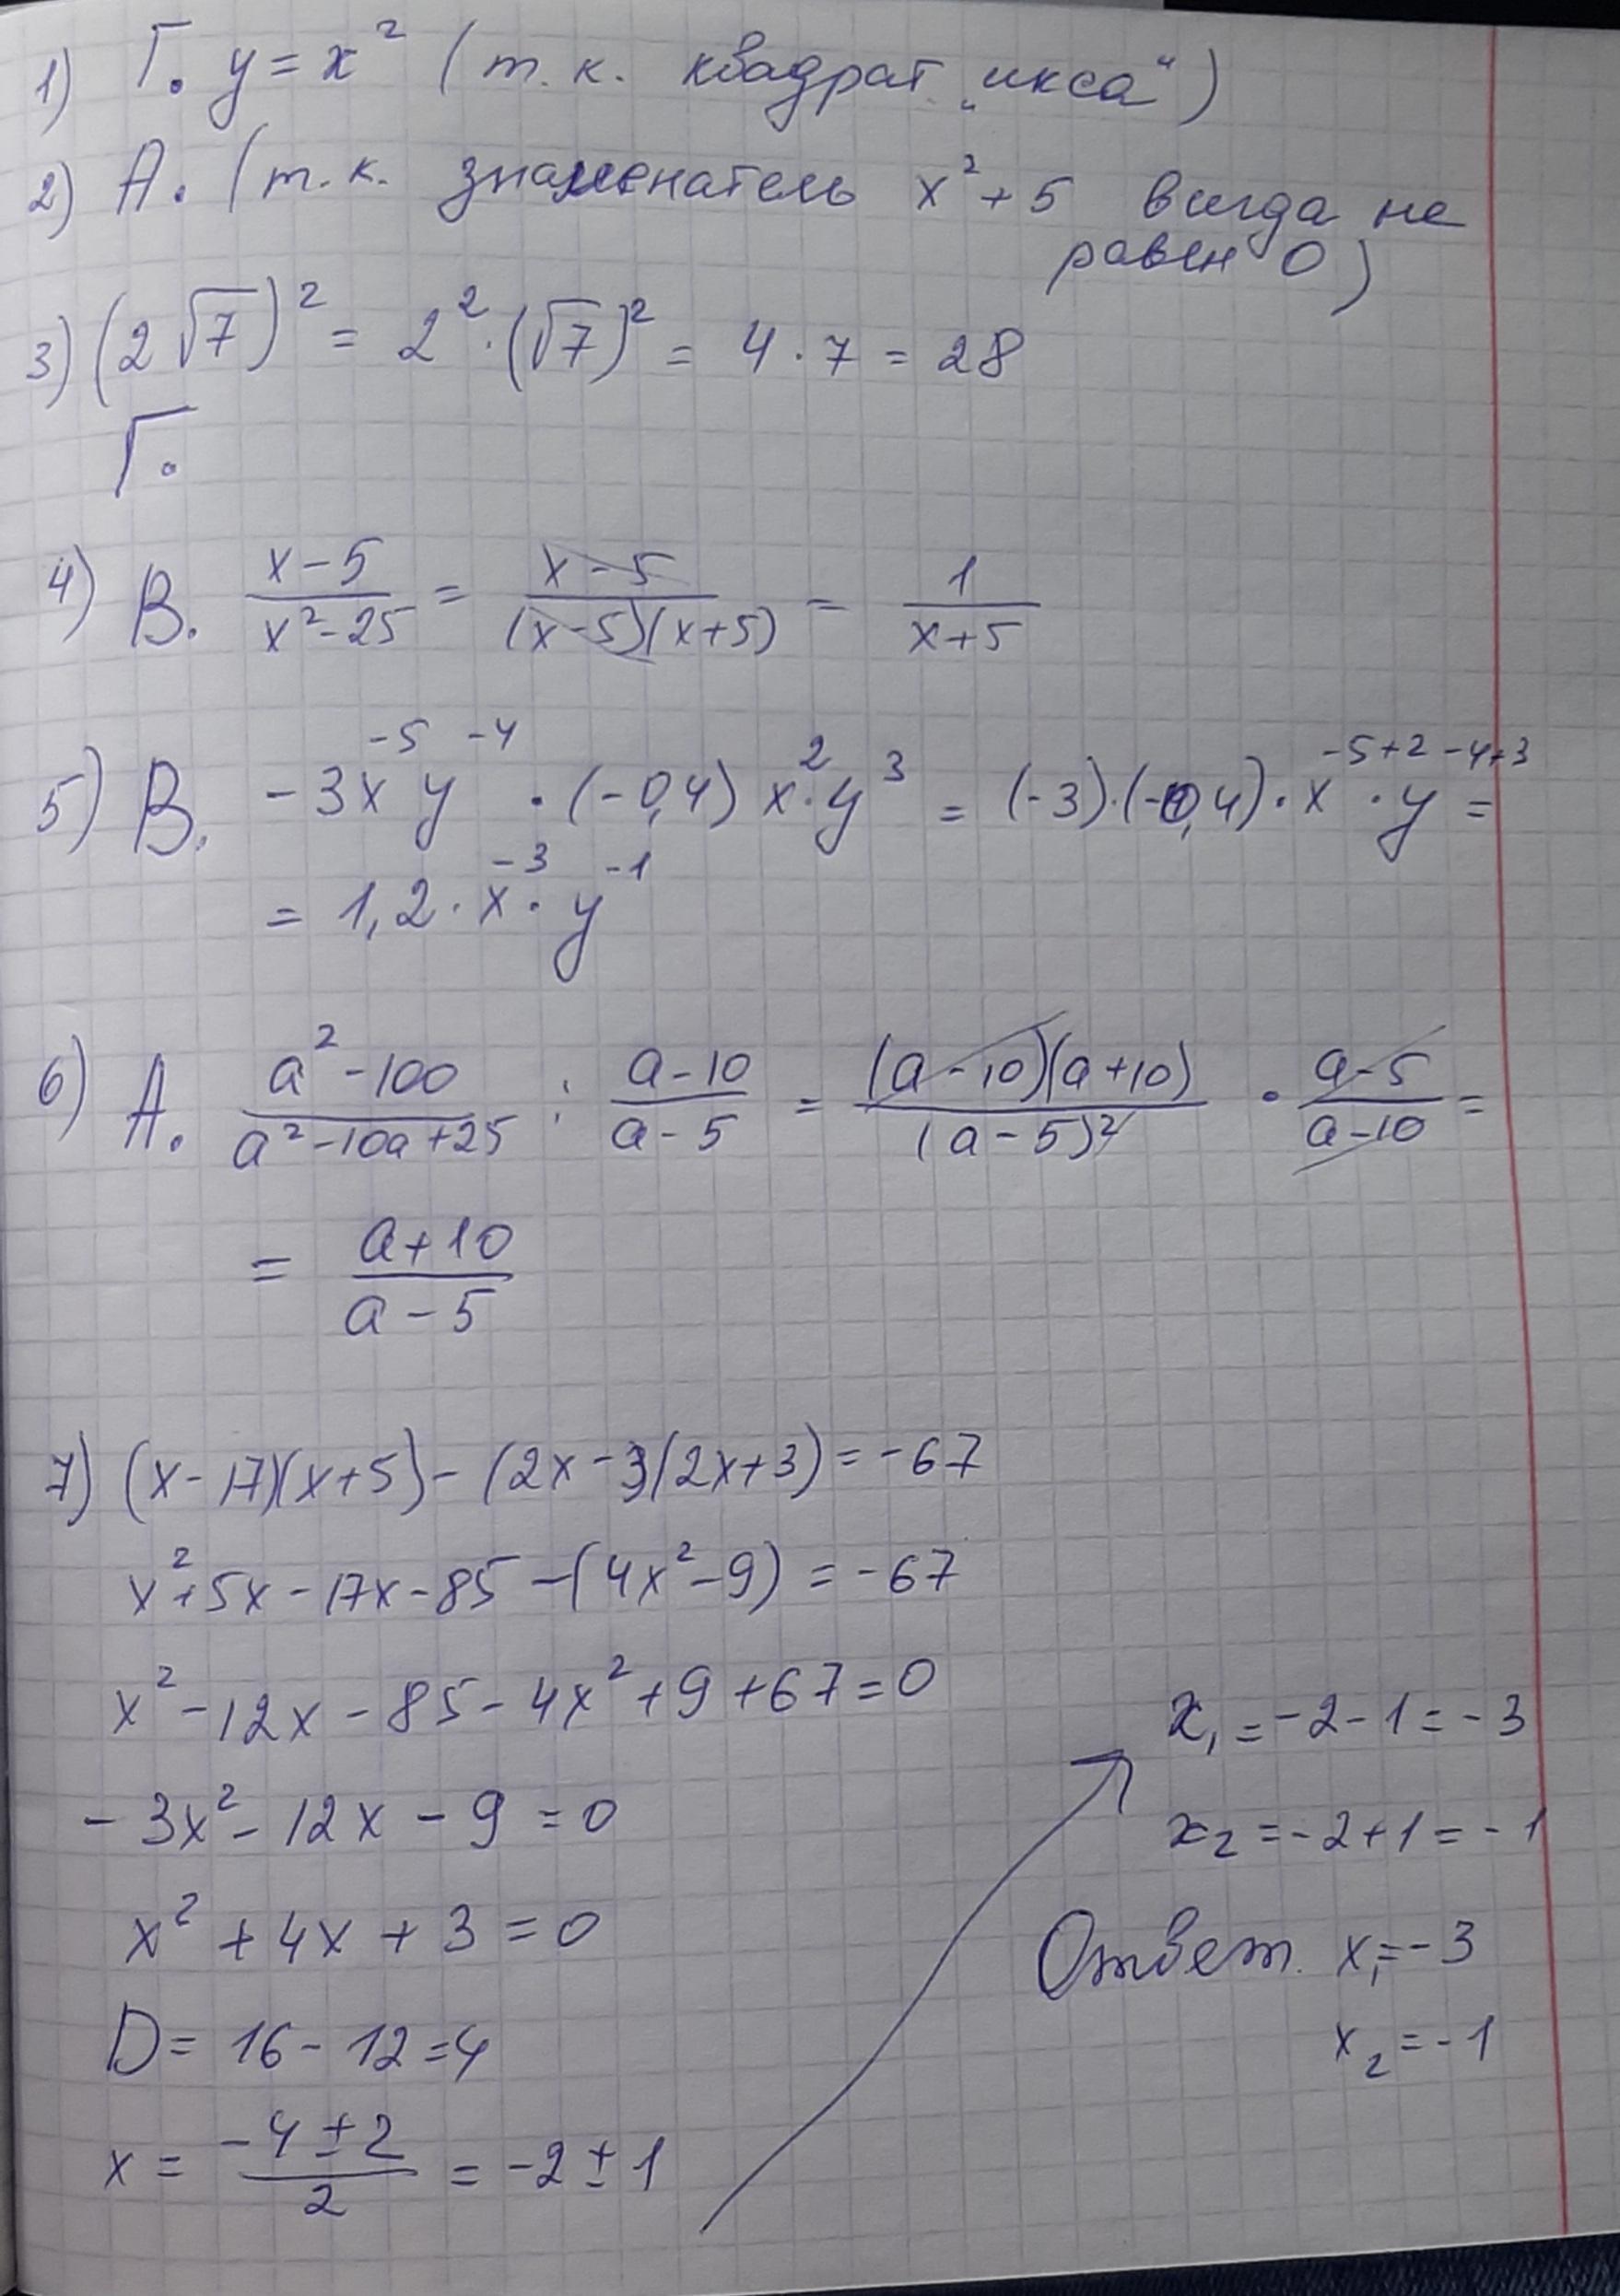 1) Г. y = x² (т.к. квадрат „икса“)
2) А. (т.к. знаменатель x² + 5 всегда не
равен 0)
3) (2√7)² = 2² · (√7)² = 4 · 7 = 28
Г.
4) В. (x-5)/(x²-25) = (x-5)/((x-5)(x+5)) = 1/(x+5)
5) В. -3x⁻⁵y⁻⁴ · (-0,4) x² · y³ = (-3)·(-0,4) · x⁻⁵⁺² · y⁻⁴⁺³ =
= 1,2 · x⁻³ · y⁻¹
6) А. (a²-100)/(a²-10a+25) : (a-10)/(a-5) = ((a-10)(a+10))/((a-5)²) · (a-5)/(a-10) =
= (a+10)/(a-5)
7) (x-17)(x+5) - (2x-3)(2x+3) = -67
x² + 5x - 17x - 85 - (4x² - 9) = -67
x² - 12x - 85 - 4x² + 9 + 67 = 0
- 3x² - 12x - 9 = 0
x² + 4x + 3 = 0
D = 16 - 12 = 4
x = (-4 ± 2)/2 = -2 ± 1
x₁ = -2 - 1 = -3
x₂ = -2 + 1 = -1
Ответ. x₁ = -3
x₂ = -1